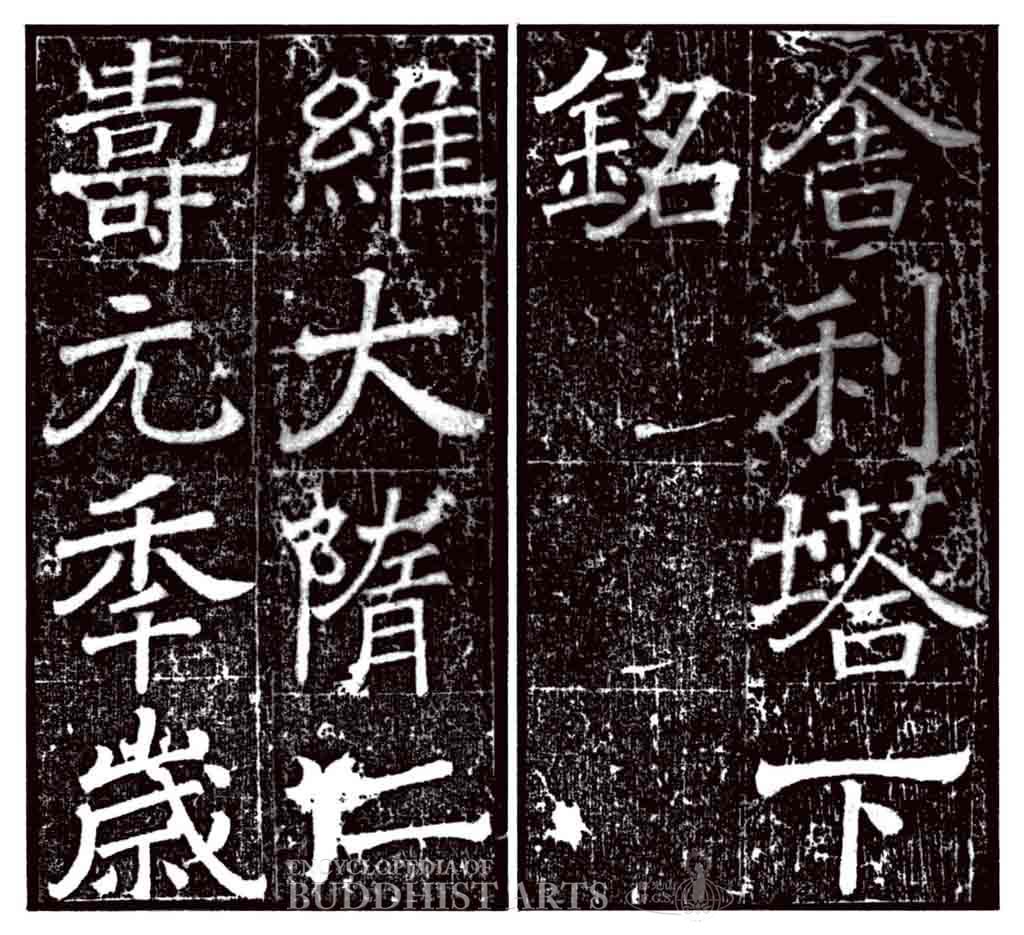 舍利塔下
銘
維大隋仁
壽元季歳
ENCYCLOPEDIA OF
BUDDHIST ARTS
F.G.S.